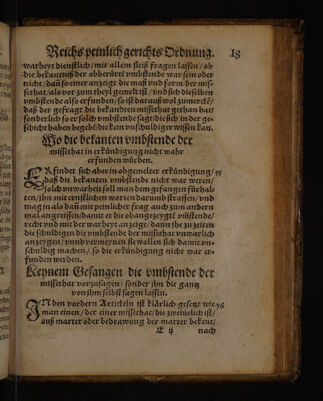 Reichs peinlich gerichts Ordnung. 18
warheyt dienstlich / mit allem fleiß fragen lassen / ob
die bekantnuß der obberürt vmbstende war sein oder
nicht / dañ so einer anzeygt die maß vnd form der mis-
sethat / als vor zum theyl gemelt ist / vnd sich dieselben
vmbstende also erfunden / so ist darauß wol zumercke͂ /
daß der gefragt die bekanten missethat gethan hat /
sonderlich so er solch vmbstende sagt / die sich in der ge-
schicht haben begebe͂ die kein vnschuldiger wissen kan.
Wo die bekanten vmbstende der
missethat in erkündigung nicht wahr
erfunden würden.
ERfindet sich aber in obgemelter erkündigung / 55
daß die bekanten vmbstende nicht war weren /
solch vnwarheit soll man dem gefangen fürhal-
ten / ihn mit ernstlichen worten darumb straffen / vnd
mag in als dañ mit peinlicher frag auch zum andern
mal angreiffen / damit er die obangezeygte͂ vm̃stende /
recht vnd mit der warheyt anzeige / dann ihe zu zeiten
die schuldigen die vmbstende der missethat vnwarlich
anzeygen / vnnd vermeynen sie wollen sich damit vn-
schuldig machen / so die erkündigung nicht war er-
funden werden.
Keynem Gefangen die vmbstende der
missethat vorzusagen / sonder ihn die gantz
von ihm selbst sagen lassen.
IN den vordern Artickeln ist klärlich gesetzt wie 56
man einen / der einer missethat / die zweiuelich ist /
auß marter oder bedrawung der marter bekent /
E ij nach